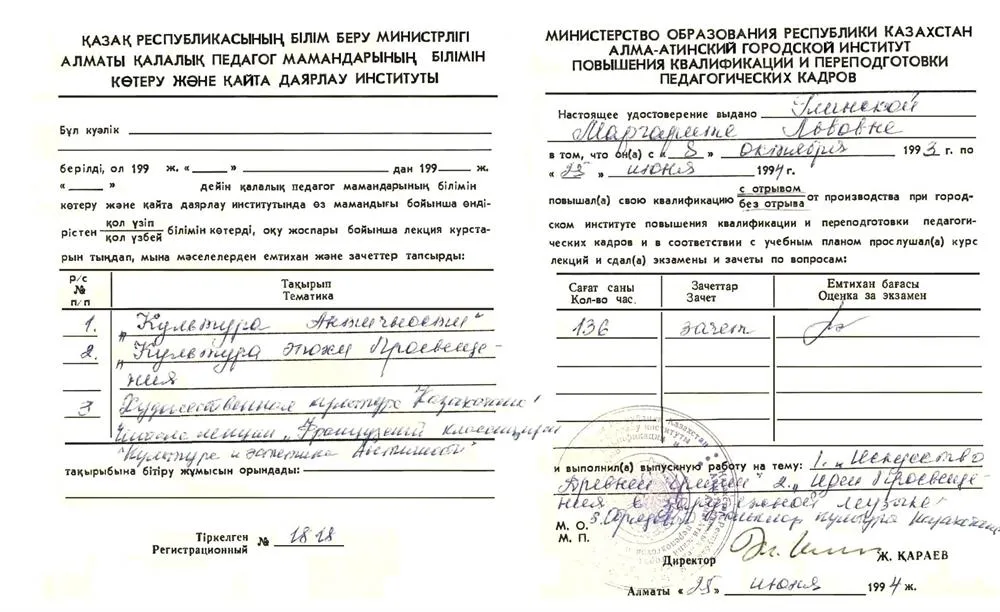 ҚАЗАҚ РЕСПУБЛИКАСЫНЫҢ БІЛІМ БЕРУ МИНИСТРЛІГІ
АЛМАТЫ ҚАЛАЛЫҚ ПЕДАГОГ МАМАНДАРЫНЫҢ БІЛІМІН
КӨТЕРУ ЖӘНЕ ҚАЙТА ДАЯРЛАУ ИНСТИТУТЫ
Бұл куәлік
берілді, ол 199 ж. « » дан 199 ж.
« » дейін қалалық педагог мамандарының білімін
көтеру және қайта даярлау институтында өз мамандығы бойынша өнді-
рістен қол үзіп
қол үзбей білімін көтерді, оқу жоспары бойынша лекция курста-
рын тыңдап, мына мәселелерден емтихан және зачеттер тапсырды:
р/с
№
п/п
Тақырып
Тематика
1. „Культура Античности“
2. „Культура эпохи Просвеще-
ния
3 Художественная культура Казахстана
Читала лекции „Французский классицизм
Культура и эстетика Античной
тақырыбына бітіру жұмысын орындады:
Тіркелген
Регистрационный № 1818
МИНИСТЕРСТВО ОБРАЗОВАНИЯ РЕСПУБЛИКИ КАЗАХСТАН
АЛМА-АТИНСКИЙ ГОРОДСКОЙ ИНСТИТУТ
ПОВЫШЕНИЯ КВАЛИФИКАЦИИ И ПЕРЕПОДГОТОВКИ
ПЕДАГОГИЧЕСКИХ КАДРОВ
Настоящее удостоверение выдано Глинской
Маргарите Львовне
в том, что он(а) с « 8 » октября 1993 г. по
« 25 » июня 1994 г.
повысил(а) свою квалификацию с отрывом
без отрыва от производства при город-
ском институте повышения квалификации и переподготовки педагоги-
ческих кадров и в соответствии с учебным планом прослушал(а) курс
лекций и сдал(а) экзамены и зачеты по вопросам:
Сағат саны
Кол-во час.
Зачеттар
Зачет
Емтихан бағасы
Оценка за экзамен
136 зачет
и выполнил(а) выпускную работу на тему: 1. „Искусство
Древней Греции“ 2. „Идеи Просвеще-
ния в зарубежной музыке
3. фольклор культура Казахстана
М. О.
М. П.
Директор Ж. ҚАРАЕВ
Алматы « 25 » июня 1994 ж.